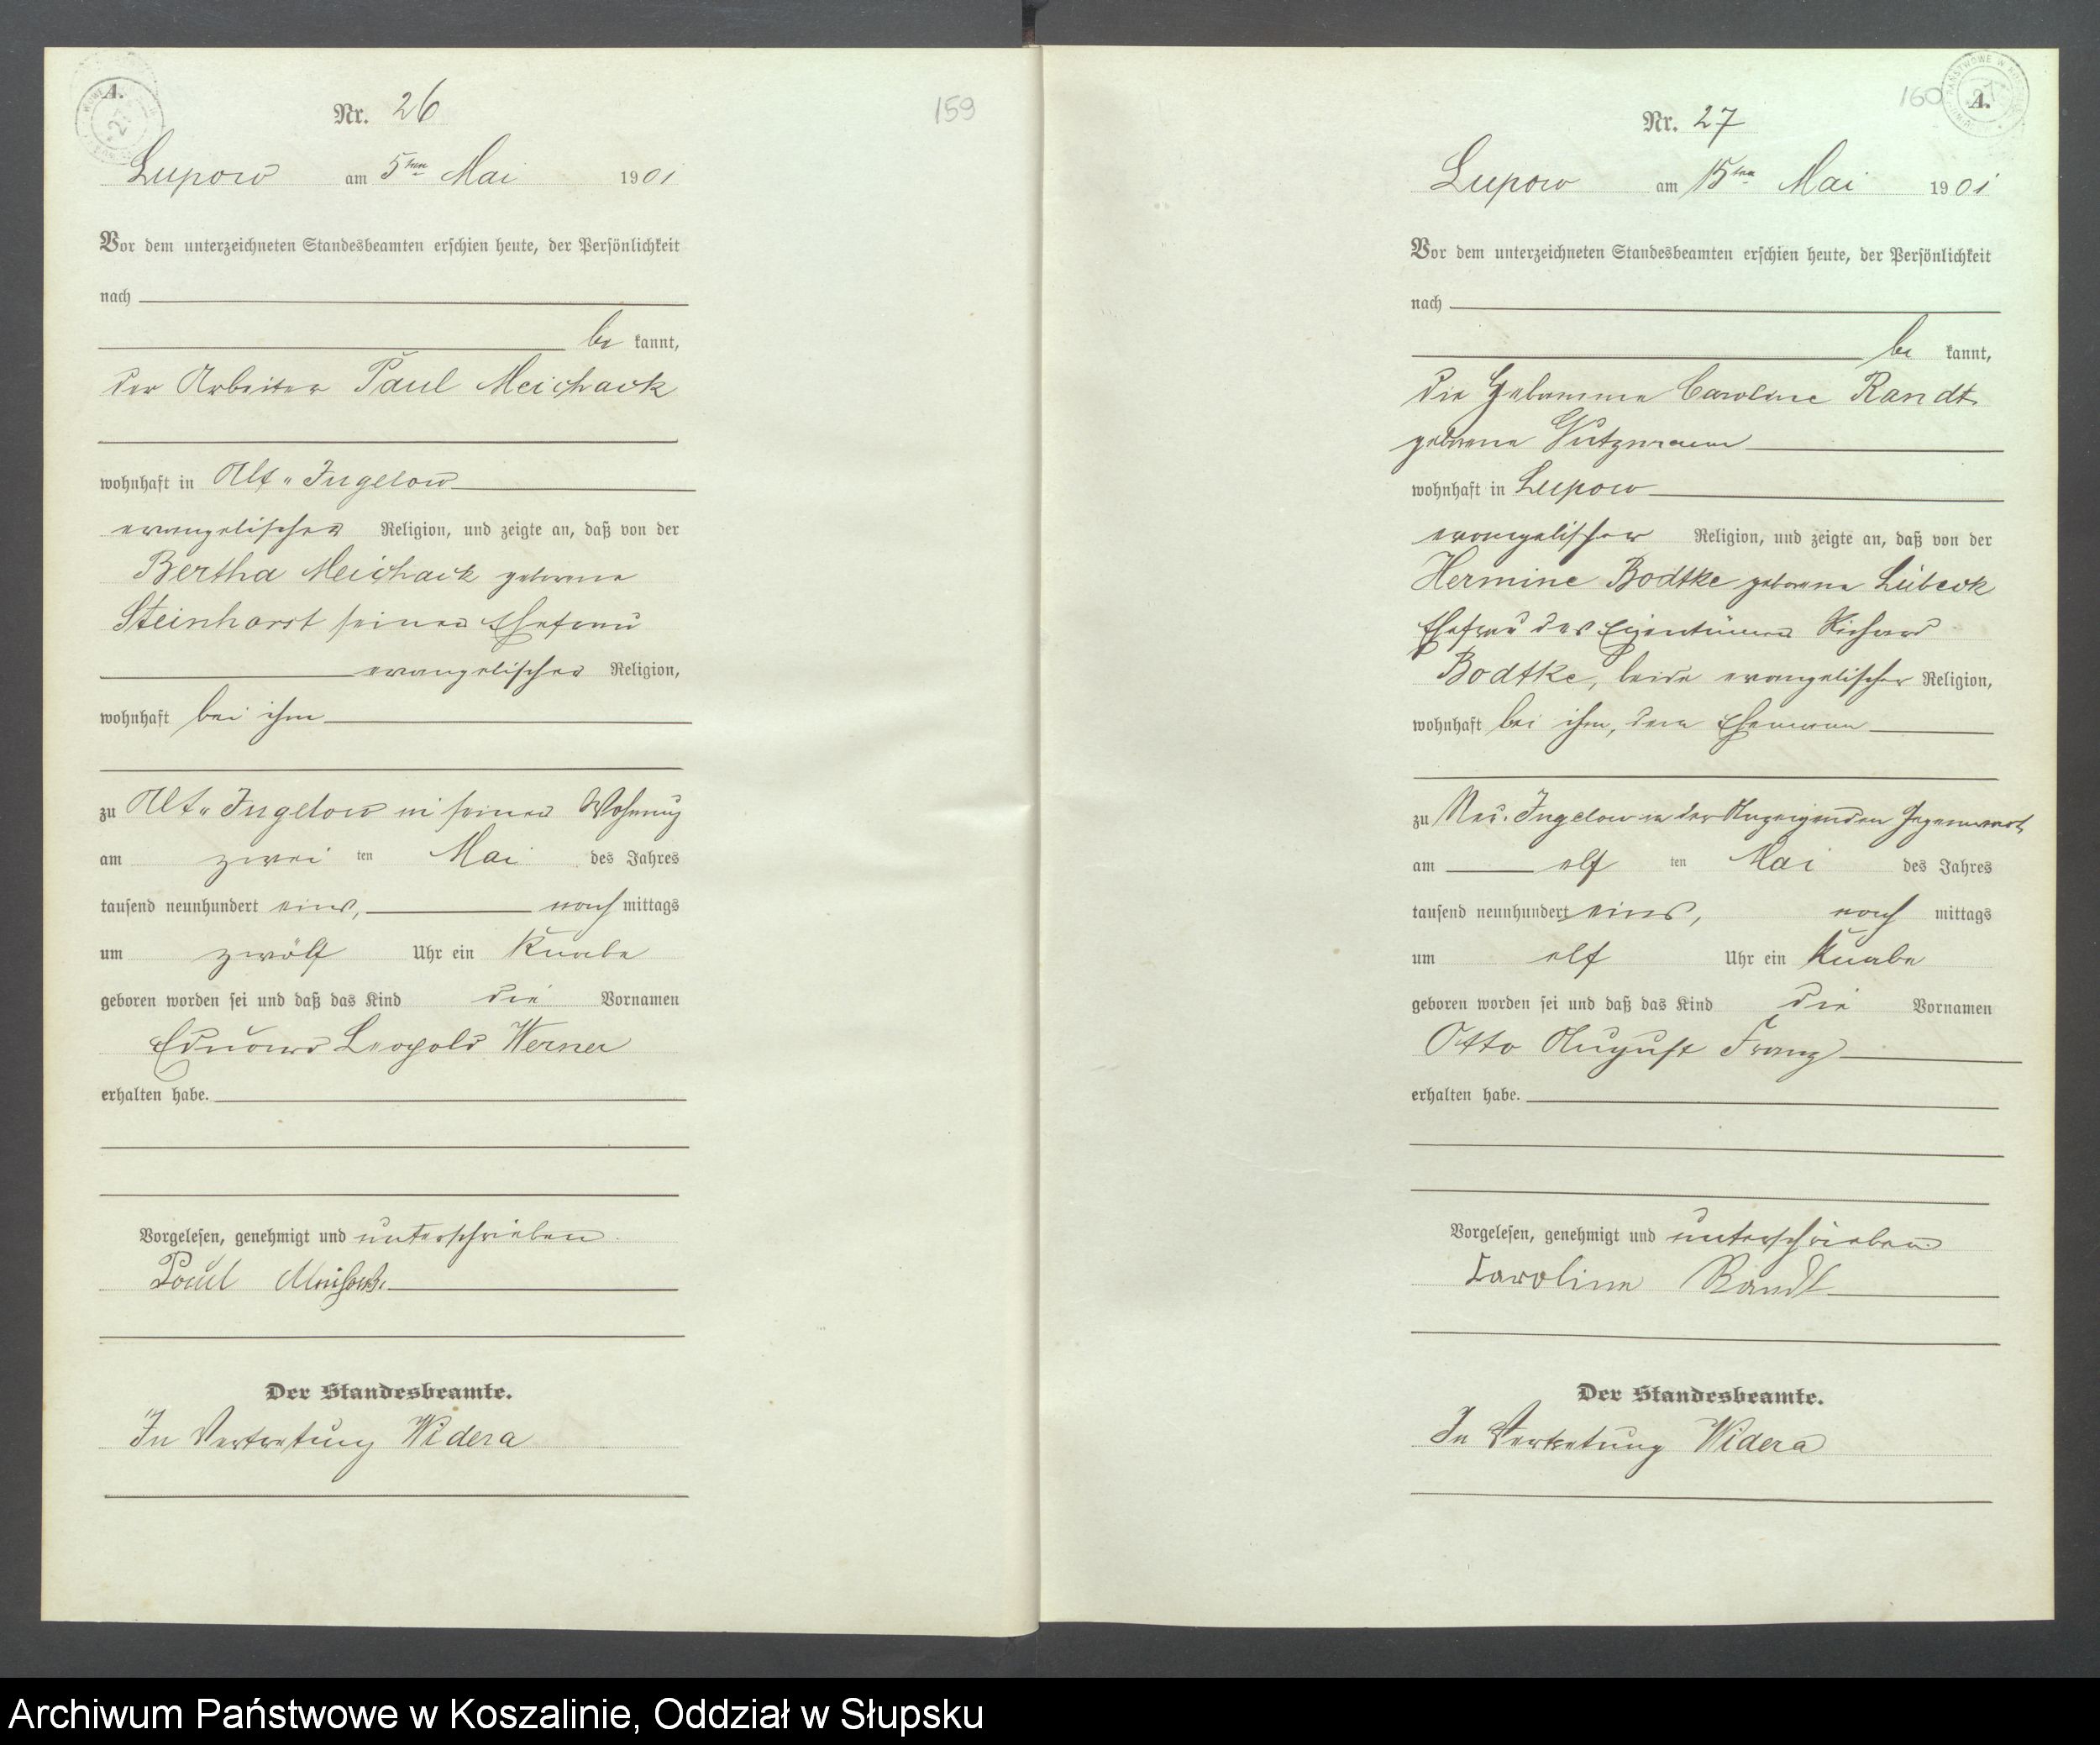 A.
Nr. 26
159
Lupow am 5ten Mai 1901
Vor dem unterzeichneten Standesbeamten erschien heute, der Persönlichkeit
nach
be kannt,
der Arbeiter Paul Meichack
wohnhaft in Alt-Jugelow
evangelischer Religion, und zeigte an, daß von der
Bertha Meichack geborene
Steinhorst seiner Ehefrau
evangelischer Religion,
wohnhaft bei ihm
zu Alt-Jugelow in seiner Wohnung
am zwei ten Mai des Jahres
tausend neunhundert eins, nach mittags
um zwölf Uhr ein Knabe
geboren worden sei und daß das Kind die Vornamen
Eduard Leopold Werner
erhalten habe.
Vorgelesen, genehmigt und unterschrieben.
Paul
Der Standesbeamte.
In Vertretung Widera
160
A.
Nr. 27
Lupow am 15ten Mai 1901
Vor dem unterzeichneten Standesbeamten erschien heute, der Persönlichkeit
nach
be kannt,
die Hebamme Caroline Randt
geborene
wohnhaft in Lupow
evangelischer Religion, und zeigte an, daß von der
Hermine Bodtke geborene Lübeck
Ehefrau des Eigentümers Richard
Bodtke, beide evangelischer Religion,
wohnhaft bei ihm, dem Ehemann
zu Neu-Jugelow in der Anzeigenden Gegenwart
am elf ten Mai des Jahres
tausend neunhundert eins, nach mittags
um elf Uhr ein Knabe
geboren worden sei und daß das Kind die Vornamen
Otto August Franz
erhalten habe.
Vorgelesen, genehmigt und unterschrieben.
Caroline Randt
Der Standesbeamte.
In Vertretung Widera
Archiwum Państwowe w Koszalinie, Oddział w Słupsku